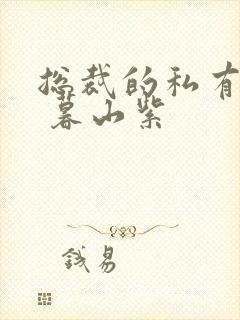 总裁的私有
暮山紫
钱易